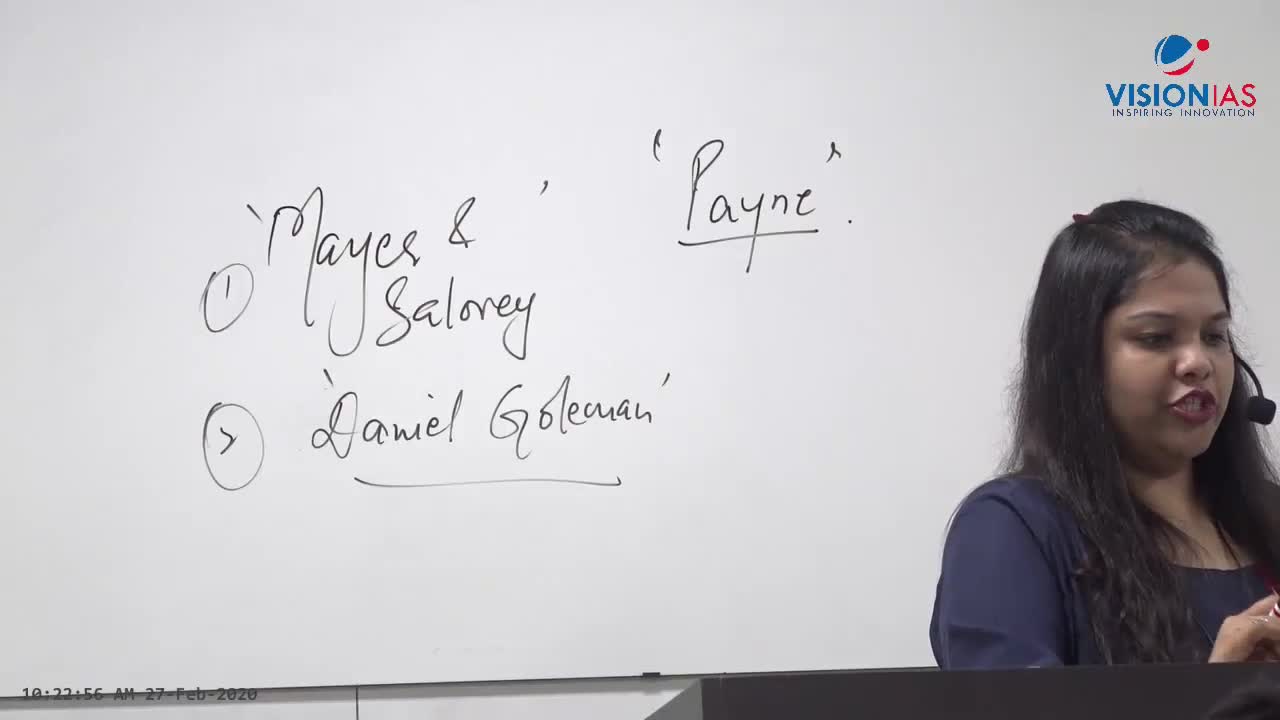 VISIONIAS
INSPIRING INNOVATION
'Payne'.
① 'Mayer &'
Salovey
② 'Daniel Goleman'
10:22:56 AM 27-Feb-2020